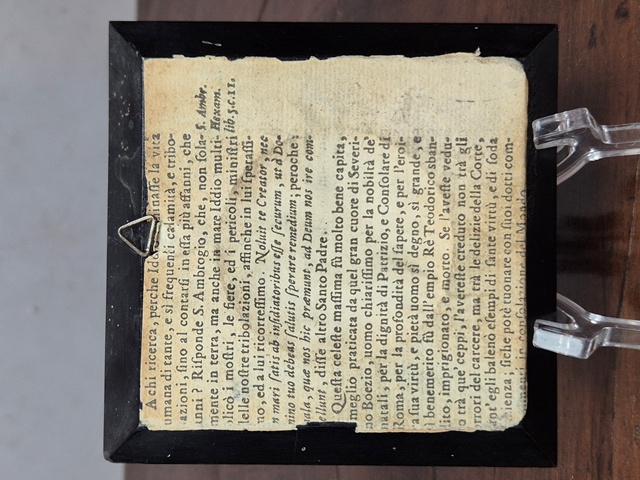 A chi ricerca, perche Id minasse la vita
umana di tante, e sì frequenti calamità, e tribo-
azioni, sino al contarsi in essa più affanni, che
anni? Risponde S. Ambrogio, che, non sola- S. Ambr.
mente in terra, ma anche in mare Iddio multi- Hexam.
plicò i mostri, le fiere, ed i pericoli, ministri lib. 5. c. 11.
delle nostre tribolazioni, affinche in lui speraſſi-
no, ed a lui ricorreſſimo. Noluit te Creator, nec
n mari ſatis ab inſidiatoribus eſſe ſecurum, ut à Do-
mino tuo debeas ſalutis ſperare remedium; peroche:
ala, quæ nos hic præmunt, ad Deum nos ire com-
ellunt, diſſe altro Santo Padre.
Queſta celeſte maſſima fù molto bene capita,
meglio praticata da quel gran cuore di Severi-
no Boezio, uomo chiariſſimo per la nobiltà de'
natali, per la dignità di Patrizio, e Conſolare di
Roma, per la profondità del ſapere, e per l'eroi-
a ſua virtù, e pietà uomo sì degno, sì grande, e
ì benemerito fù dall'empio Rè Teodorico sban-
dito, imprigionato, e morto. Se l'aveſte vedu-
o trà que ceppi, l'avereſte creduto non trà gli
orrori del carcere, ma trà le delizie della Corte,
ant' egli baleno eſempi di tante virtù, e di ſoda
pienza; ſiche potè tuonare con ſuoi dotti com-
menti in conſolazione del Mondo